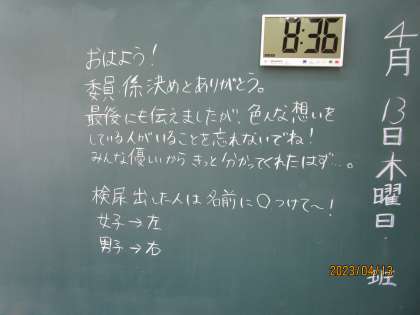 おはよう！
委員、係決めとありがとう。
最後にも伝えましたが、色んな想いを
している人がいることを忘れないでね！
みんな優しいから きっと分かってくれたはず…。
検尿 出した人は 名前に○つけて〜！
女子→左
男子→右
8:36
4月13日木曜日・班
2023/04/13